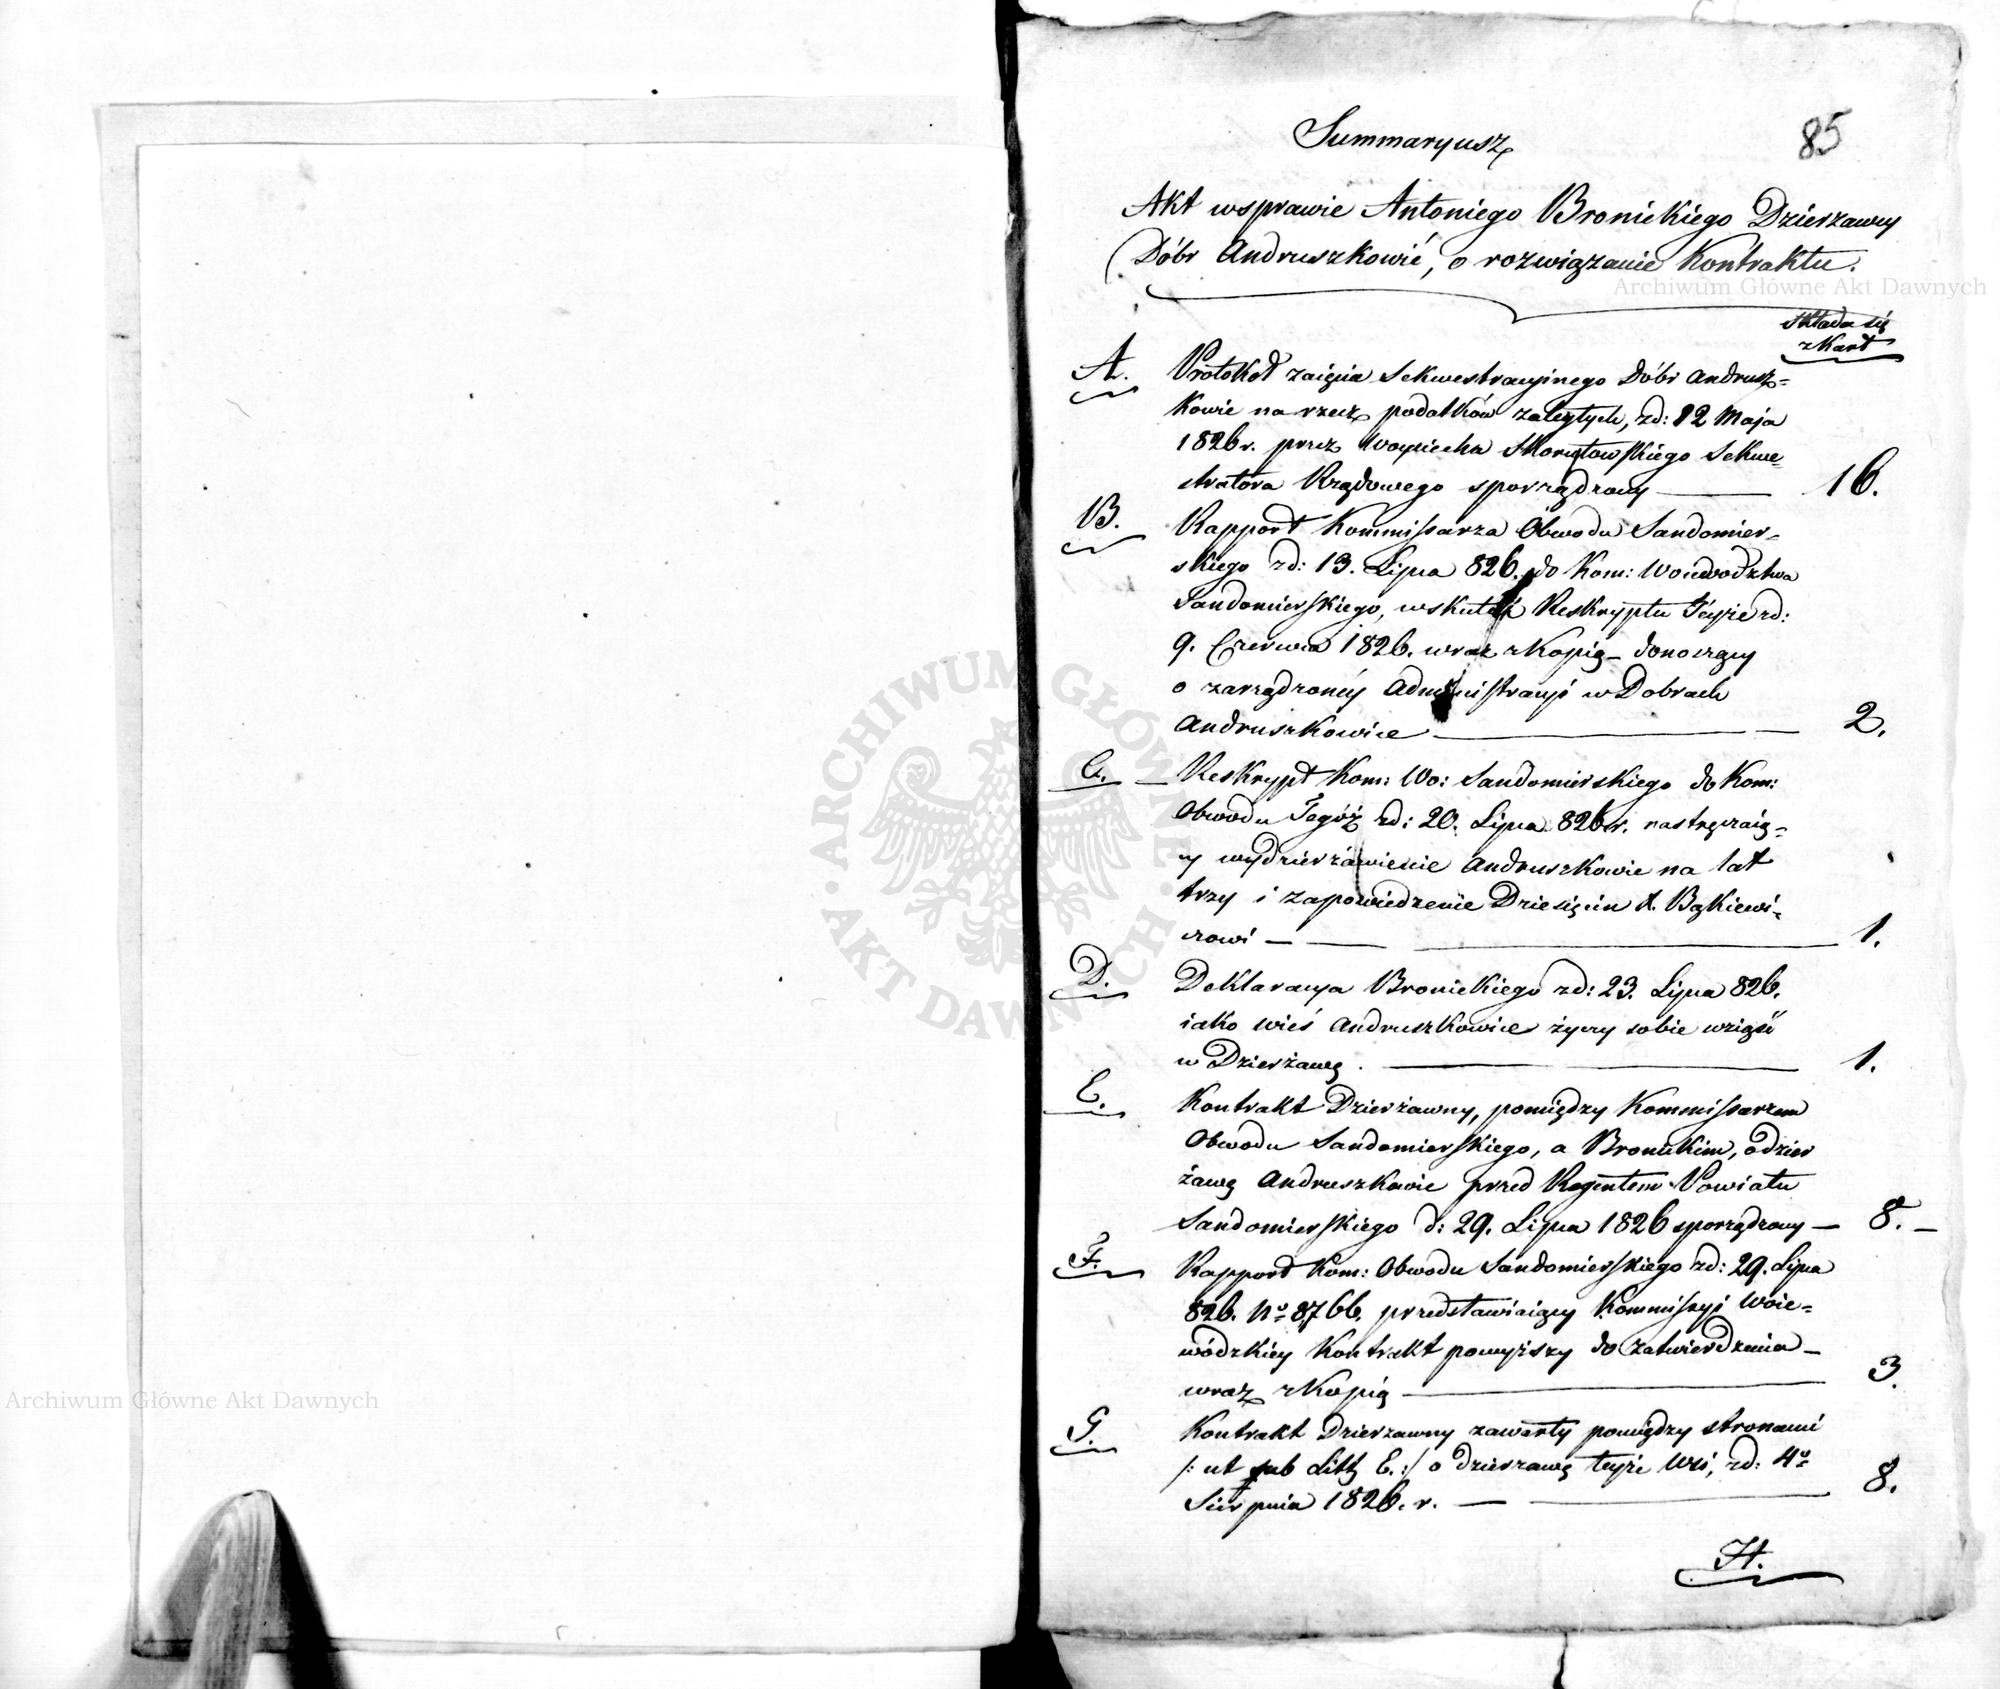 85
Summaryusz
Akt wsprawie Antoniego Bronickiego Dzierzawcy
Dóbr Andruszkowić, o rozwiązanie Kontraktu.
składa się
z Kart
A. Protokół zaięcia Sekwestracyinego Dóbr Andrusz=
kowic na rzecz podatków zaległych, zd: 12 Maja
1826 r. przez Woyciecha Sekwe=
stratora Rządowego sporządzony — 16.
B. Rapport Kommissarza Obwodu Sandomier-
skiego zd: 13. Lipca 826. do Kom: Woiewództwa
Sandomierskiego, wskutek Reskryptu Teyże zd:
9. Czerwca 1826. wraz z Kopią — donoszący
o zarządzonéy Administracyi w Dobrach
Andruszkowice — 2.
C. — Reskrypt Kom: Wo: Sandomierskiego do Kom:
Obwodu Tegóż zd: 20. Lipca 826 r. nastręczaią=
cy wydzierżawienie Andruszkowic na lat
trzy i zapowiedzenie Dziesięcin X. Bąkiewi=
czowi — 1.
D. Deklaracya Bronickiego zd: 23. Lipca 826.
iako wieś Andruszkowice życzy sobie wziąść
w Dzierżawę. — 1.
E. Kontrakt Dzierżawny, pomiędzy Kommissarzem
Obwodu Sandomierskiego, a Bronickim, o dzier
żawę Andruszkowic przed Regentem Powiatu
Sandomierskiego d: 29. Lipca 1826 sporządzony — 8. —
F. Rapport Kom: Obwodu Sandomierskiego zd: 29. Lipca
826. No 8766. przedstawiaiący Kommissyi Woie=
wódzkiey Kontrakt powyższy do zatwierdzenia —
wraz z Kopią — 3.
G. Kontrakt Dzierzawny zawarty pomiędzy stronami
/: ut sub Litt E. :/ o dzierzawę teyże Wsi, zd: 4o
Sierpnia 1826. r. — 8.
H.
Archiwum Główne Akt Dawnych
Archiwum Główne Akt Dawnych
ARCHIWUM GŁÓWNE AKT DAWNYCH